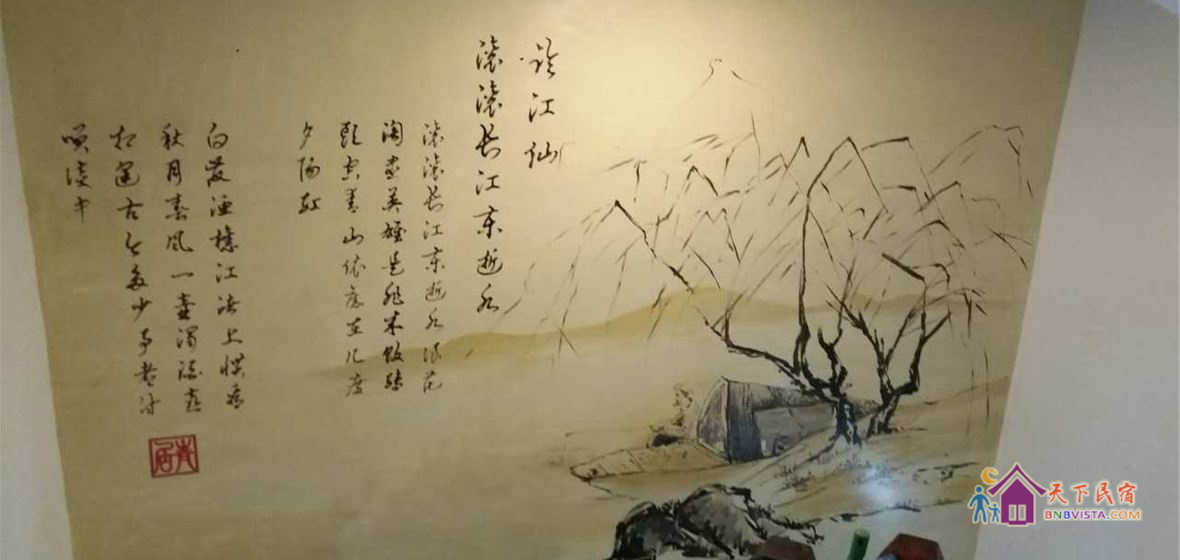 临江仙
滚滚长江东逝水
滚滚长江东逝水浪花
淘尽英雄是非成败转
头空青山依旧在几度
夕阳红
白发渔樵江渚上惯看
秋月春风一壶浊酒喜
相逢古今多少事都付
笑谈中
天下民宿
BNBVISTA.COM